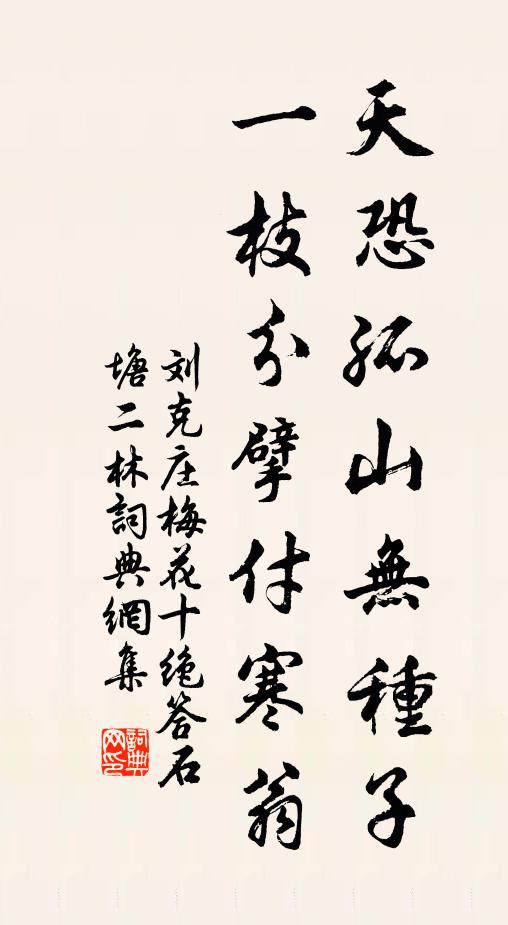 天恐孤山無種子
一枝分擘付寒翁
刘克庄梅花十绝答石
塘二林詞典網集
詞典
网印